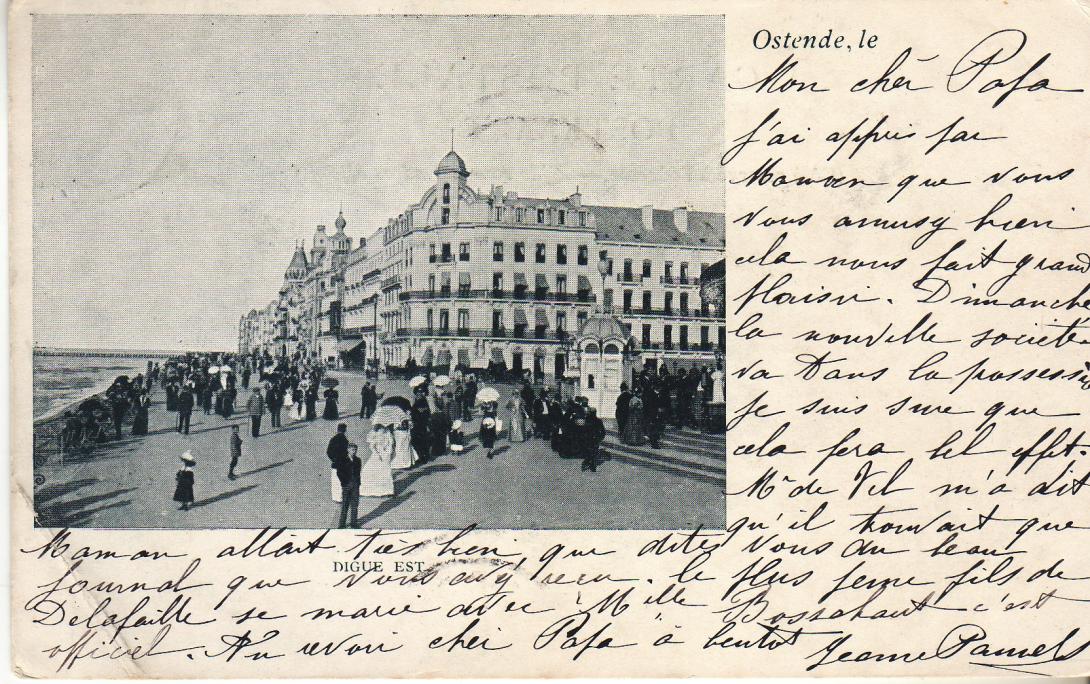 Ostende, le
Mon chér Papa
j'ai appris par
Maman que vous
vous amusez bien
cela nous fait grand
plaisir. Dimanche
la nouvelle societé
va dans la
je suis sure que
cela fera bel effet.
Mr de m'a dit
qu'il trouvait que
Maman allait très bien, que dites vous du beau
DIGUE EST.
journal que vous avez recu. le plus jeune fils de
Delafaille se marie avec Melle c'est
officiel. Au revoir cher Papa à bentot
Jeanne